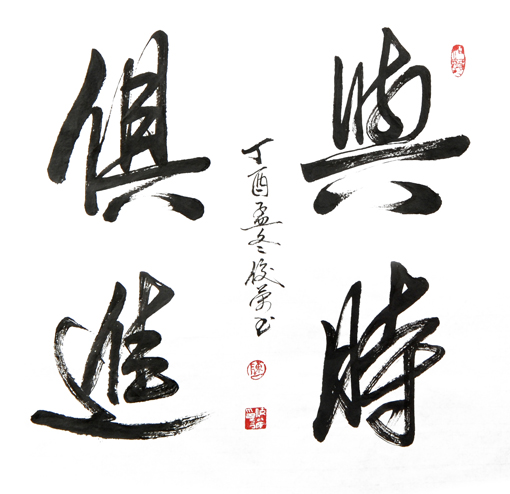 與時
俱進
丁酉孟冬俊榮书